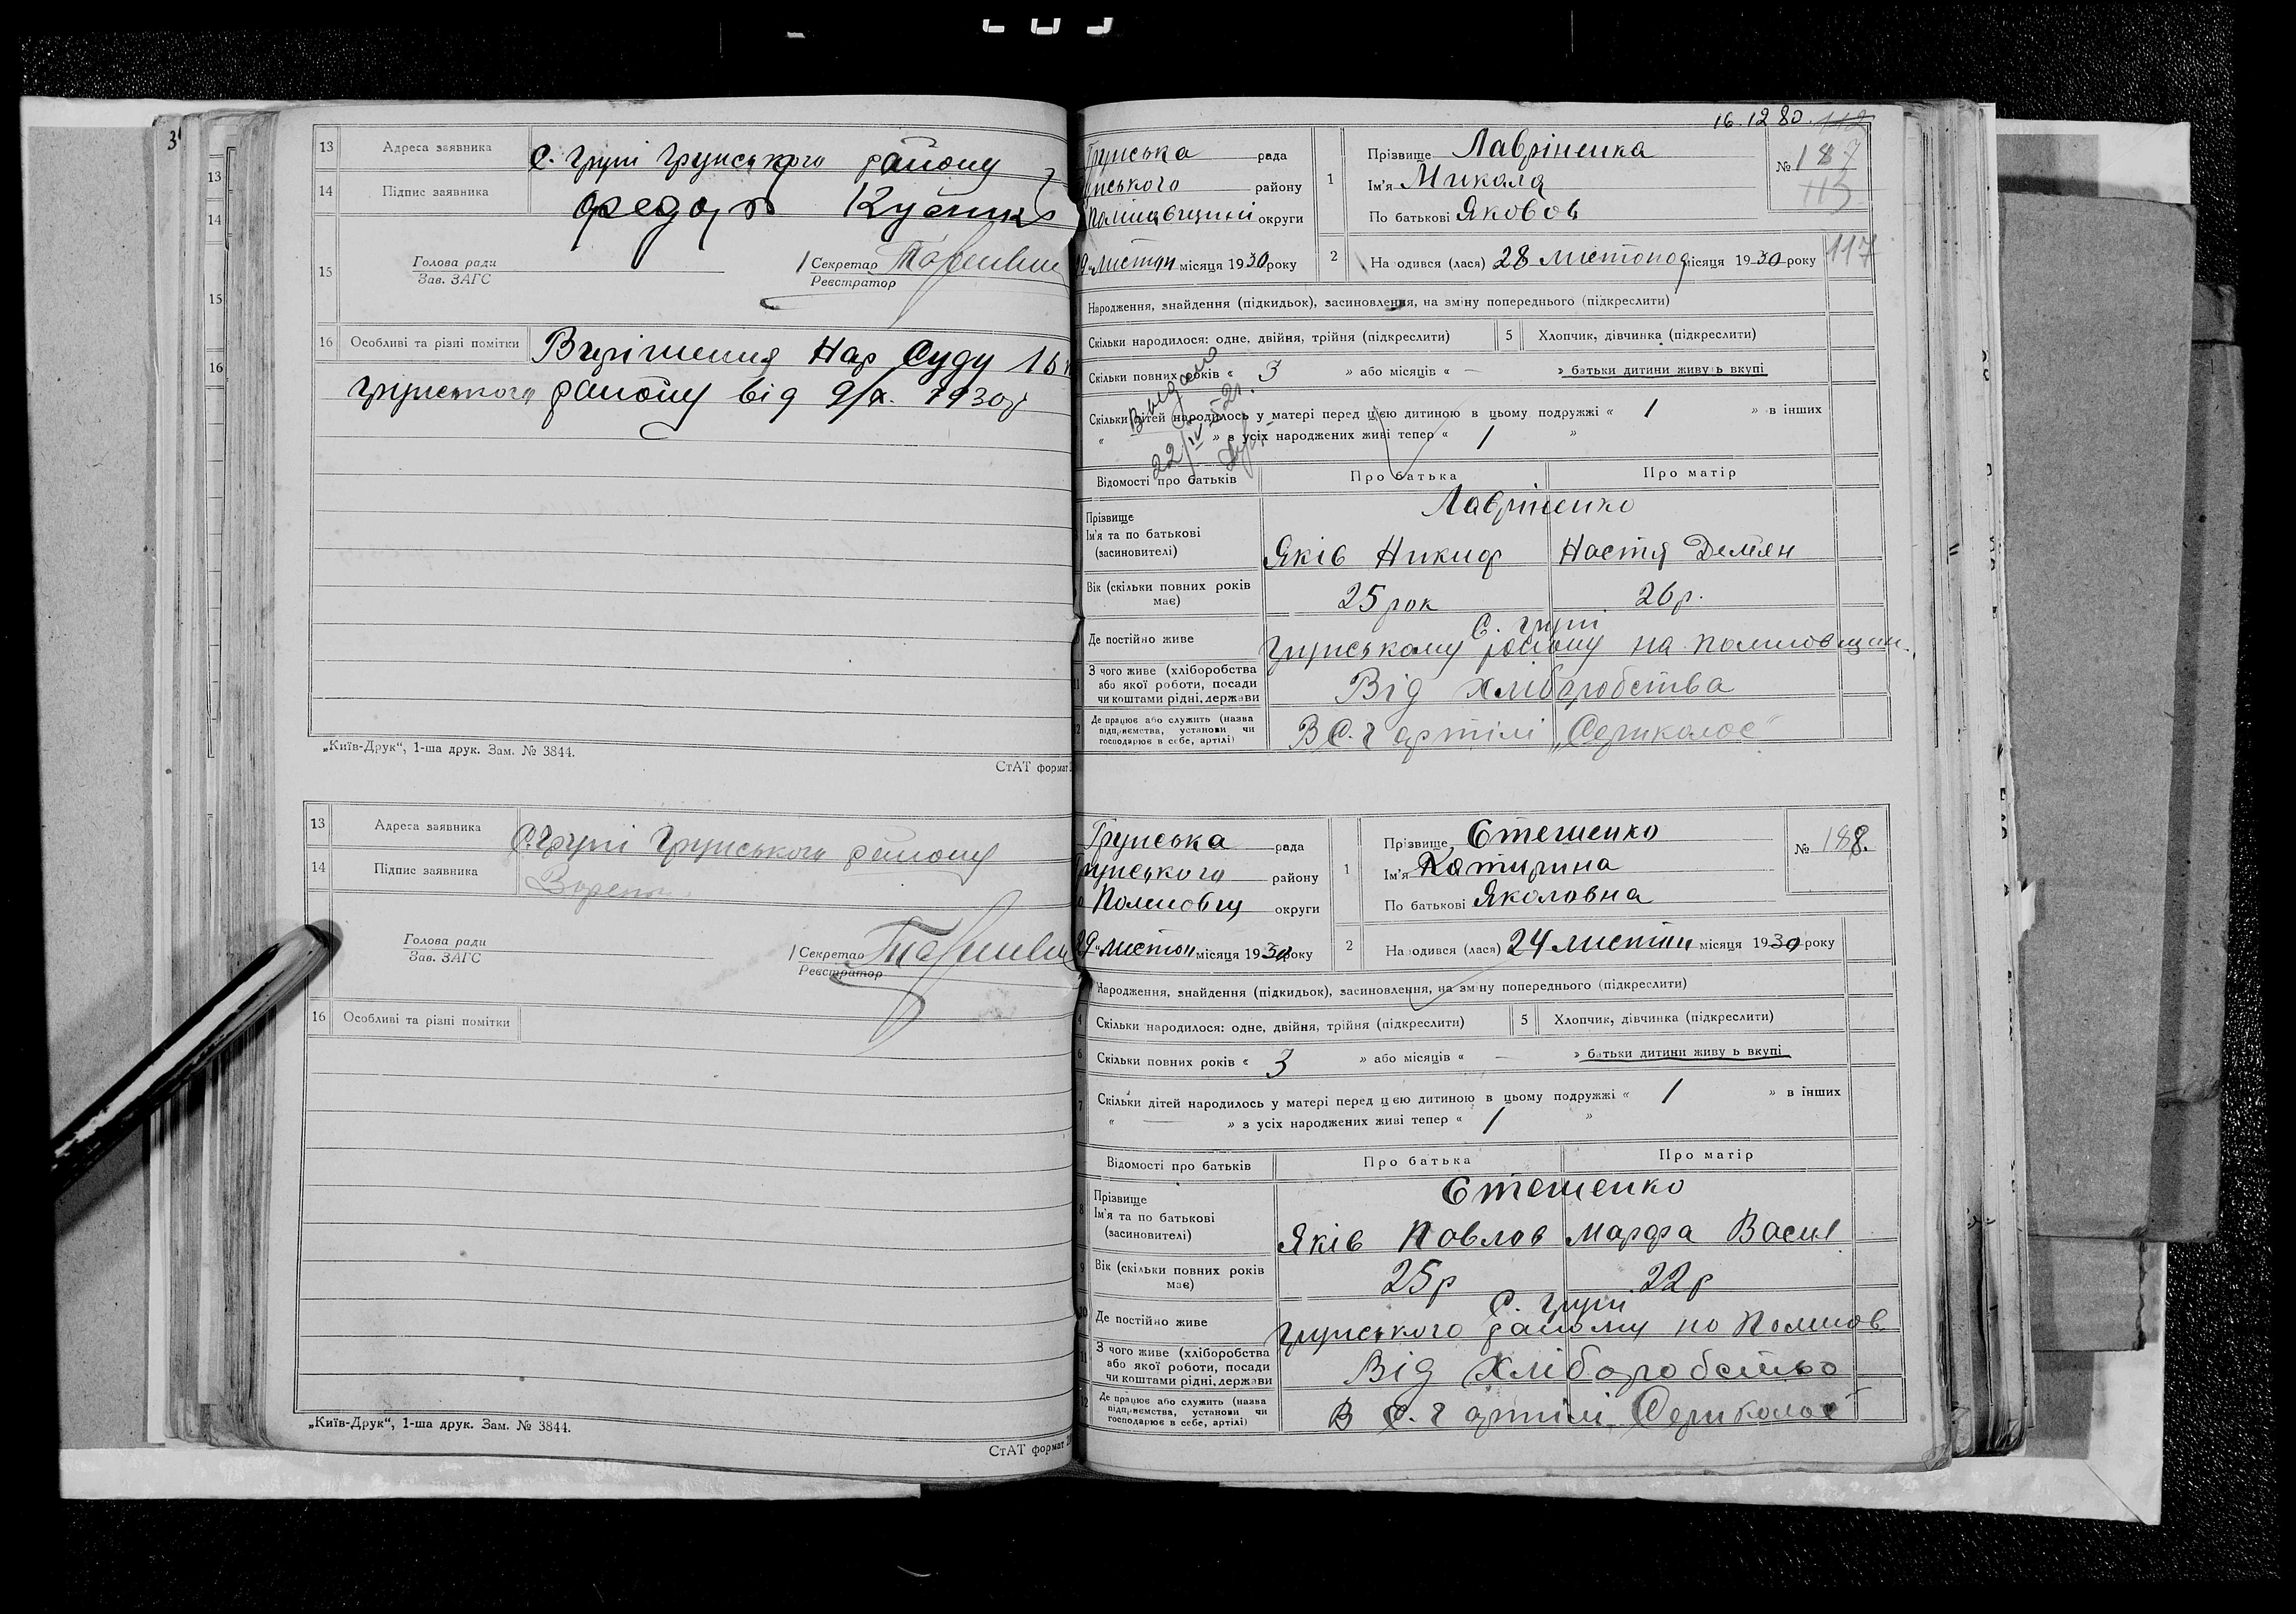 3
13
14
15
16
13 Адреса заявника С. Груні Грунського району
14 Підпис заявника Федор
15 Голова ради
Зав. ЗАГС
Секретар
Реєстратор
16 Особливі та різні помітки Вирішення Нар Суду 16
Грунського району від 9/Х. 1930р
„Київ-Друк“, 1-ша друк. Зам. № 3844.
СтАТ формат
13 Адреса заявника С. Груні Грунського району
14 Підпис заявника
Голова ради
Зав. ЗАГС
Секретар
Реєстратор
16 Особливі та різні помітки
„Київ-Друк“, 1-ша друк. Зам. № 3844.
СтАТ формат
16.12 80.
Грунська рада
нського району
округи
29 листоп місяця 1930 року
1 Прізвище Лавріненка
Ім'я Микола
По батькові Яковов
№ 187
113
117
2 Народився (лася) 28 листопод місяця 1930 року
Народження, знайдення (підкидьок), засиновлення, на зміну попереднього (підкреслити)
Скільки народилося: одне, двійня, трійня (підкреслити) 5 Хлопчик, дівчинка (підкреслити)
Скільки повних років « 3 » або місяців « — » батьки дитини живуть вкупі
Скільки дітей народилось у матері перед цією дитиною в цьому подружжі « 1 » в інших
« » з усіх народжених живі тепер « 1 »
Відомості про батьків Про батька Про матір
Прізвище Лавріненко
Ім'я та по батькові
(засиновителі) Яків Никиф Настя Демян
Вік (скільки повних років має) 25 рок 26 р.
Де постійно живе С. Груні
Грунському району на
11 З чого живе (хліборобства
або якої роботи, посади
чи коштами рідні, держави Від хліборобства
12 Де працює або служить (назва
підприємства, установи чи
господарює в себе, артілі) В С. г артілі
Грунська рада
Грунського району
округи
29 листоп місяця 1930 року
1 Прізвище Стешенко
Ім'я Катирина
По батькові Яколовна
№ 188.
2 Народився (лася) 24 листоп місяця 1930 року
Народження, знайдення (підкидьок), засиновлення, на зміну попереднього (підкреслити)
4 Скільки народилося: одне, двійня, трійня (підкреслити) 5 Хлопчик, дівчинка (підкреслити)
6 Скільки повних років « 3 » або місяців « — » батьки дитини живуть вкупі
7 Скільки дітей народилось у матері перед цією дитиною в цьому подружжі « 1 » в інших
« — » з усіх народжених живі тепер « 1 »
Відомості про батьків Про батька Про матір
8 Прізвище Стешенко
Ім'я та по батькові
(засиновителі) Яків Повлов Марфа Васил
9 Вік (скільки повних років має) 25р 22р
10 Де постійно живе С. Груні
Грунського району по
11 З чого живе (хліборобства
або якої роботи, посади
чи коштами рідні, держави Від хліборобство
12 Де працює або служить (назва
підприємства, установи чи
господарює в себе, артілі) В С. г артілі